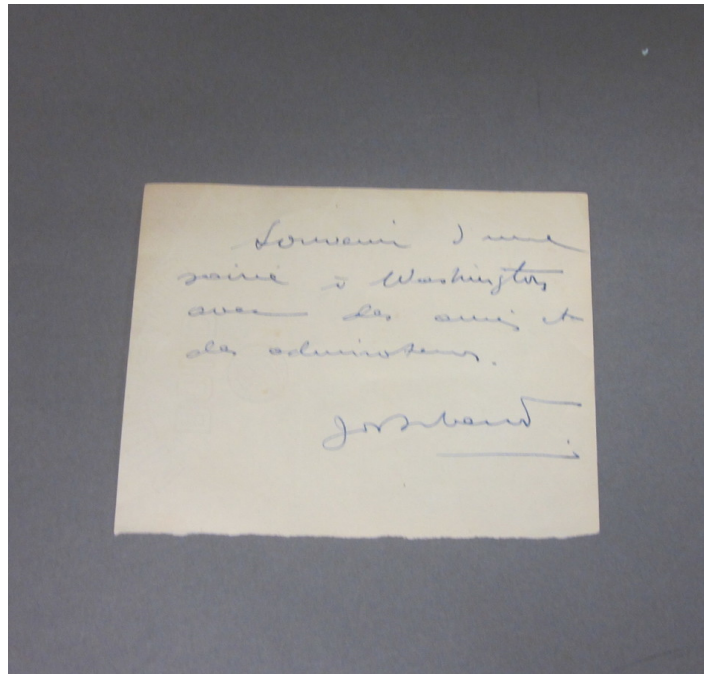 Souvenir d'une
soirée à Washington
avec des amis et
des admirateurs.